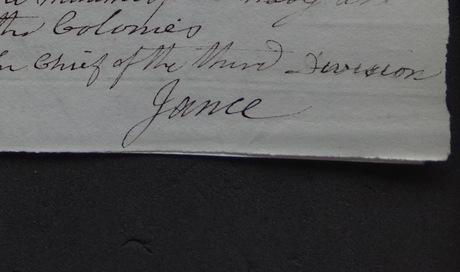 the Colonies
Chief of the third Division
Jance